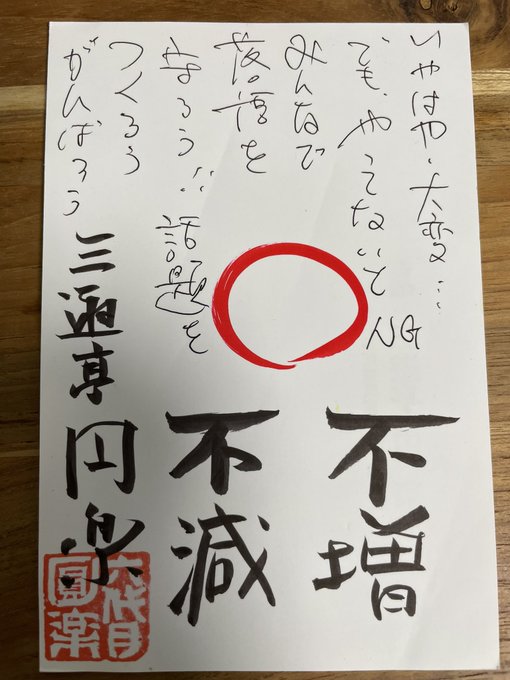 いやはや、大変…
でも、やってないとNG
みんなで
落語を
やろう!!話題を
つくろう
がんばろう
不増
不減
三遊亭円楽
六代目
圓楽